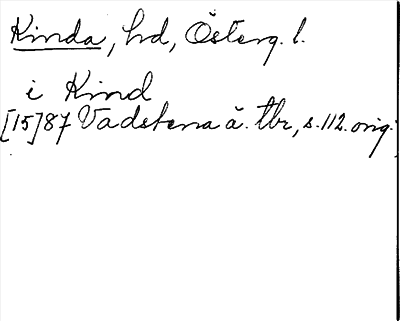 Kinda, hd, Österg. l.
i Kind
[15]87 Vadstena ä. tbr, s. 112. orig.